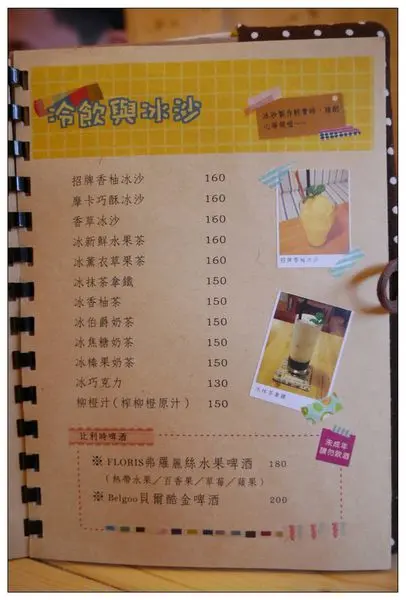 冷飲與冰沙
冰沙製作較費時，請耐
心等候喔~~
招牌香柚冰沙 160
摩卡巧酥冰沙 160
香草冰沙 160
冰新鮮水果茶 160
冰薰衣草果茶 160
冰抹茶拿鐵 150
冰香柚茶 150
冰伯爵奶茶 150
冰焦糖奶茶 150
冰榛果奶茶 150
冰巧克力 130
柳橙汁(榨柳橙原汁) 150
招牌香柚冰沙
冰抹茶拿鐵
比利時啤酒
未成年
請勿飲酒
※ FLORIS弗羅麗絲水果啤酒 180
(熱帶水果／百香果／草莓／蘋果)
※ Belgoo貝爾酷金啤酒 200